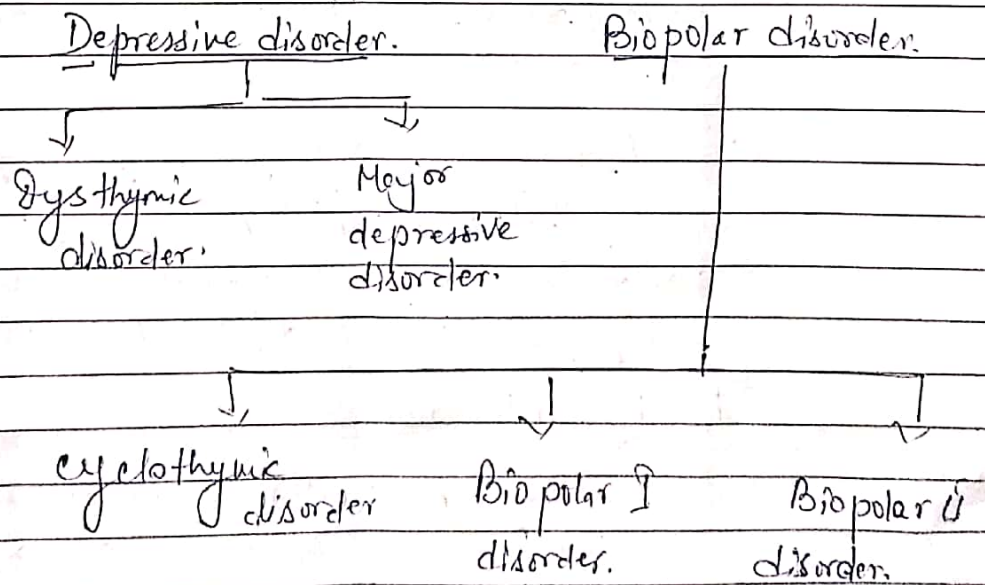 Depressive disorder. Biopolar disorder.
Dysthymic
disorder.
Major
depressive
disorder.
cyclothymic
disorder
Biopolar I
disorder.
Biopolar ii
disorder.